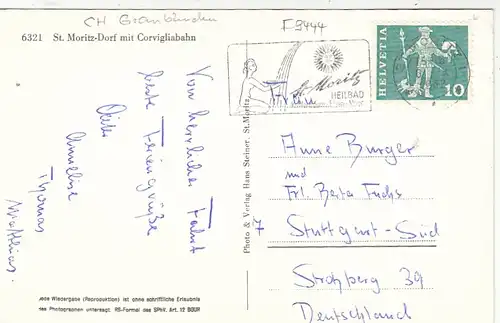 CH Graubünden
F 9444
6321 St. Moritz-Dorf mit Corvigliabahn
St. Moritz
HEILBAD
HELVETIA
10
Von herrlicher Fahrt
liebe Feriengrüße
Annelise
Thomas
Matthias.
Photo & Verlag Hans Steiner, St. Moritz
Frau
Anne Burger
und
Frl. Berta Fuchs
7 Stuttgart-Süd
Strohberg 39
Deutschland
Wiedergabe (Reproduktion) ist ohne schriftliche Erlaubnis
des Photographen untersagt. RS-Formel des SPhV. Art. 12 BGUR